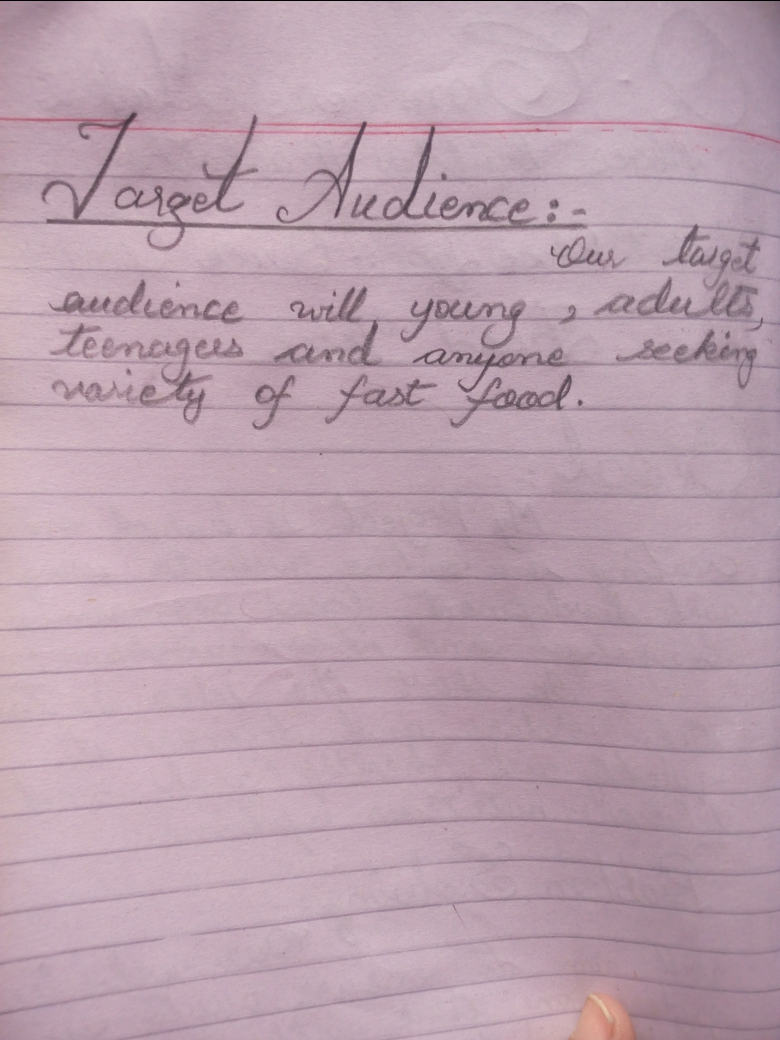 Target Audience:-
Our target
audience will young, adults,
teenagers and anyone seeking
variety of fast food.